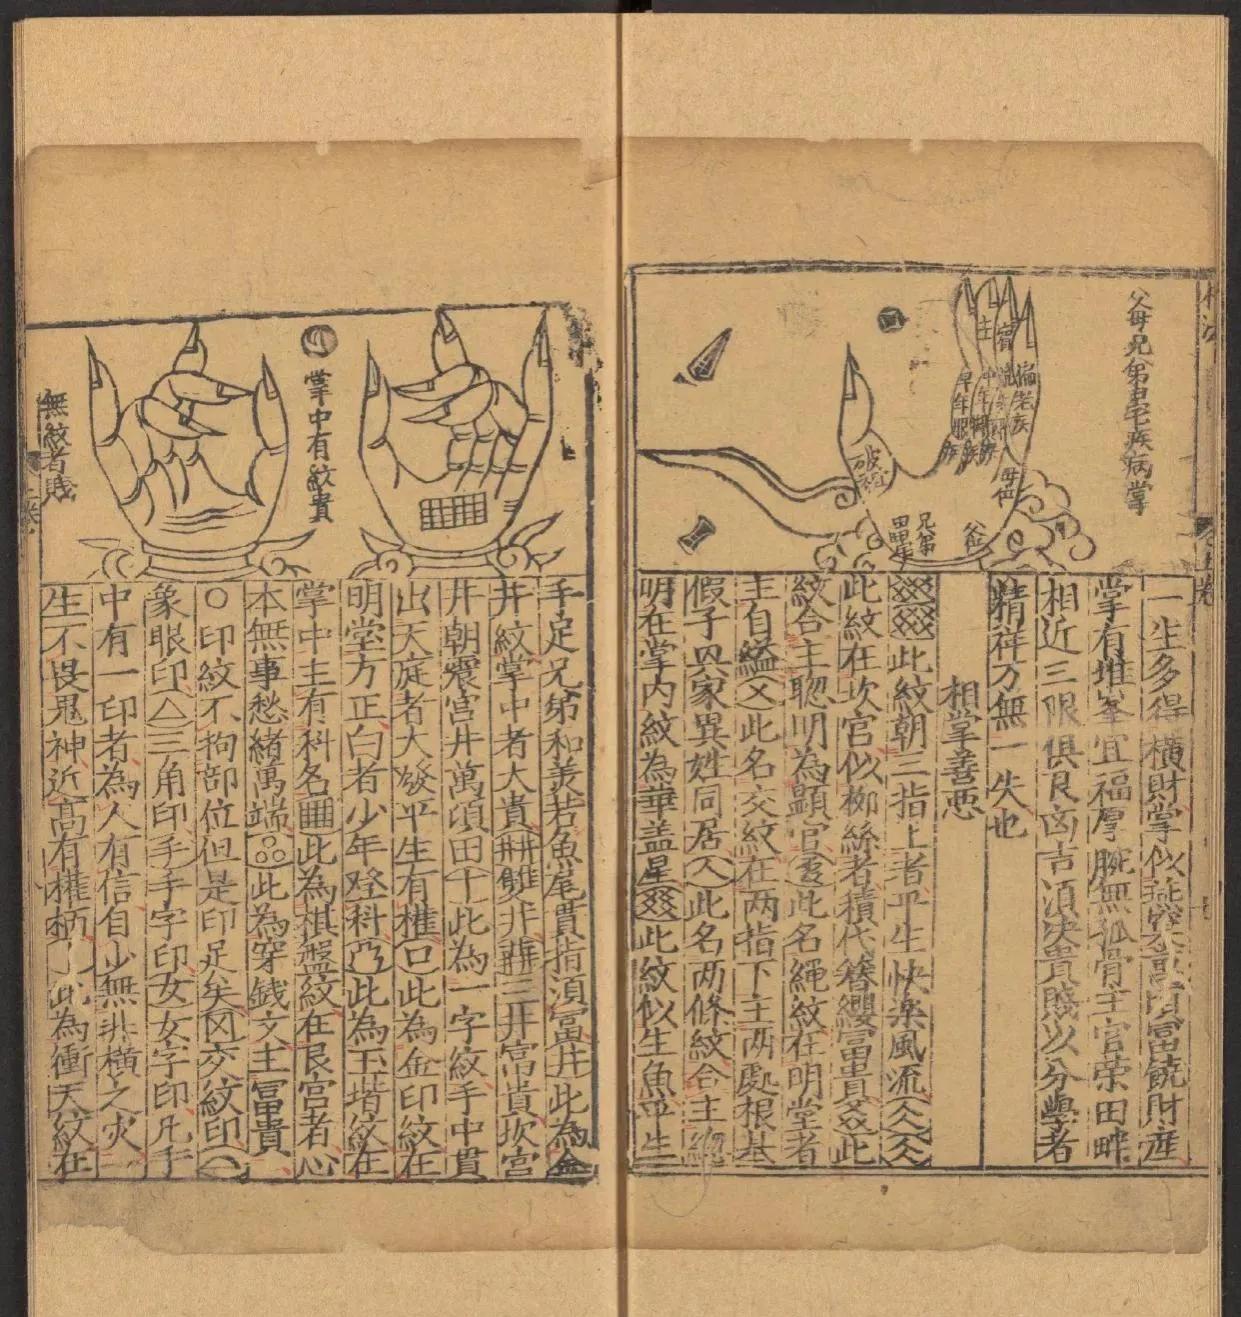 父母兄弟田宅疾病掌
父位
母位
兄弟
田宅
破
一生多得橫財掌似燕窩富饒財產
掌有堆峯宜福厚腕無孤骨主官榮田畔
相近三限俱艮凶吉須決貴賤以分學者
精祥万無一失也
相掌善惡
此紋朝三指上者平生快樂風流
此紋在坎官似柳絲者積代簪纓富貴此
紋合主聰明為顯官此名繩紋在明堂者
主自縊此名交紋在两指下主两處根基
假子具家異姓同居此名两條紋合主
明在掌內紋為華盖星此紋似生魚平生
掌中有紋貴
無紋者賤
手足兄弟和美若魚尾貫指須富井此為金
井紋掌中者大貴雙井三井富貴坎宮
井朝震宮井萬頃田十此為一字紋手中貫
出天庭者大發平生有權口此為金印紋在
明堂方正白者少年登科此為玉堦紋在
掌中主有科名此為棋盤紋在艮宮者心
本無事愁緒萬端此為穿錢文主富貴
○印紋不拘部位但是印足矣交紋印
象眼印△三角印手手字印女女字印凡手
中有一印者為人有信自少無非橫之灾
生不畏鬼神近高有權柄此為衝天紋在